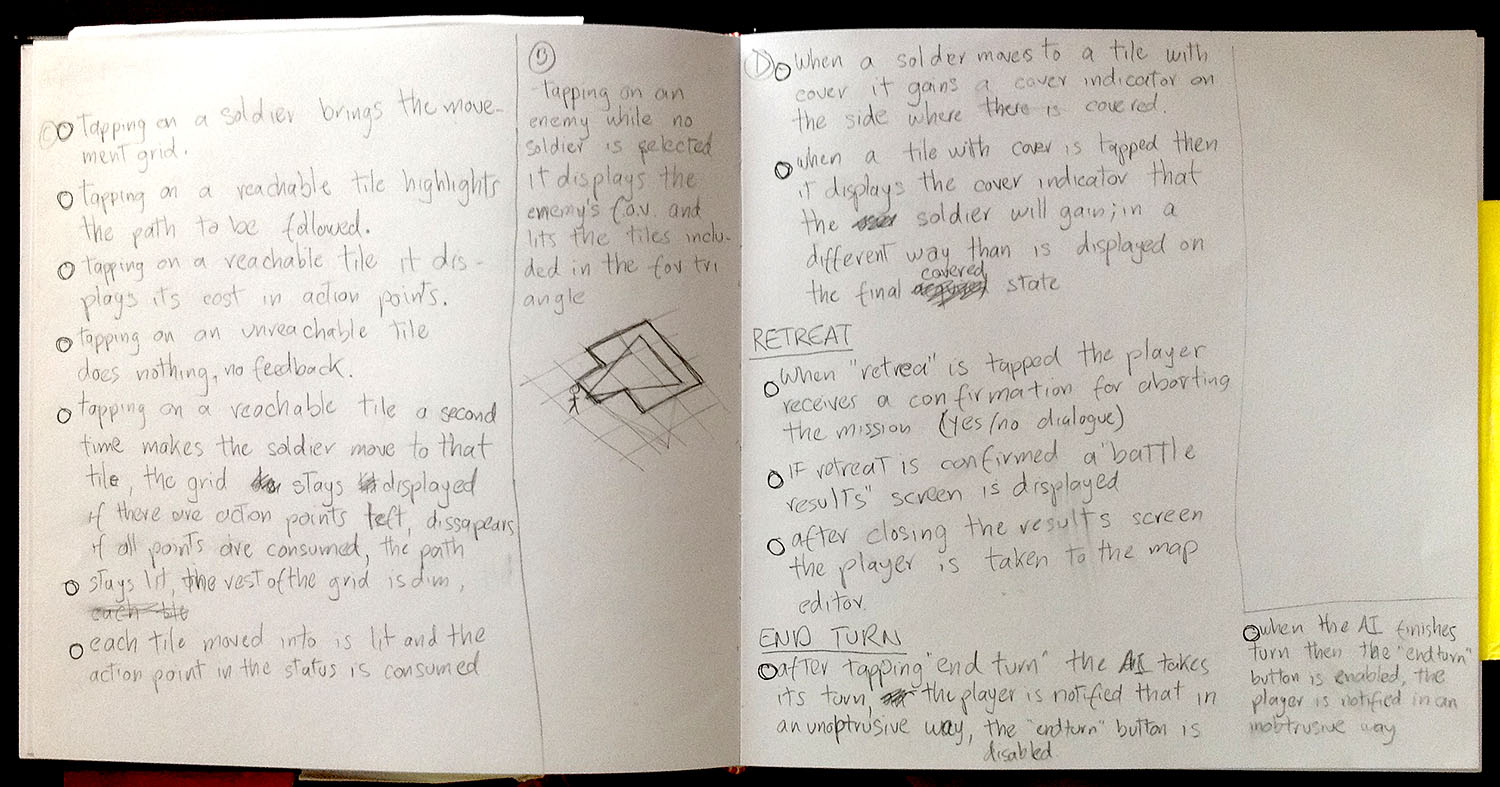 C
o tapping on a soldier brings the move-
ment grid.
o tapping on a reachable tile highlights
the path to be followed.
o tapping on a reachable tile it dis-
plays its cost in action points.
o tapping on an unreachable tile
does nothing, no feedback.
o tapping on a reachable tile a second
time makes the soldier move to that
tile, the grid stays displayed
if there are action points left, dissapears
if all points are consumed, the path
o stays lit, the rest of the grid is dim,
each tile
o each tile moved into is lit and the
action point in the status is consumed
-tapping on an
enemy while no
soldier is selected
it displays the
enemy's f.o.v. and
lits the tiles inclu-
ded in the fov tri
angle
D
o when a soldier moves to a tile with
cover it gains a cover indicator on
the side where there is covered.
o when a tile with cover is tapped then
it displays the cover indicator that
the soldier will gain; in a
different way than is displayed on
covered
the final state
RETREAT
o when "retrea" is tapped the player
receives a confirmation for aborting
the mission (yes/no dialogue)
o IF retreat is confirmed a "battle
results" screen is displayed
o after closing the results screen
the player is taken to the map
editor.
END TURN
o after tapping "end turn" the AI takes
its turn, the player is notified that in
an unoptrusive way, the "endturn" button is
disabled
o when the AI finishes
turn then the "endturn"
button is enabled, the
player is notified in an
inobtrusive way